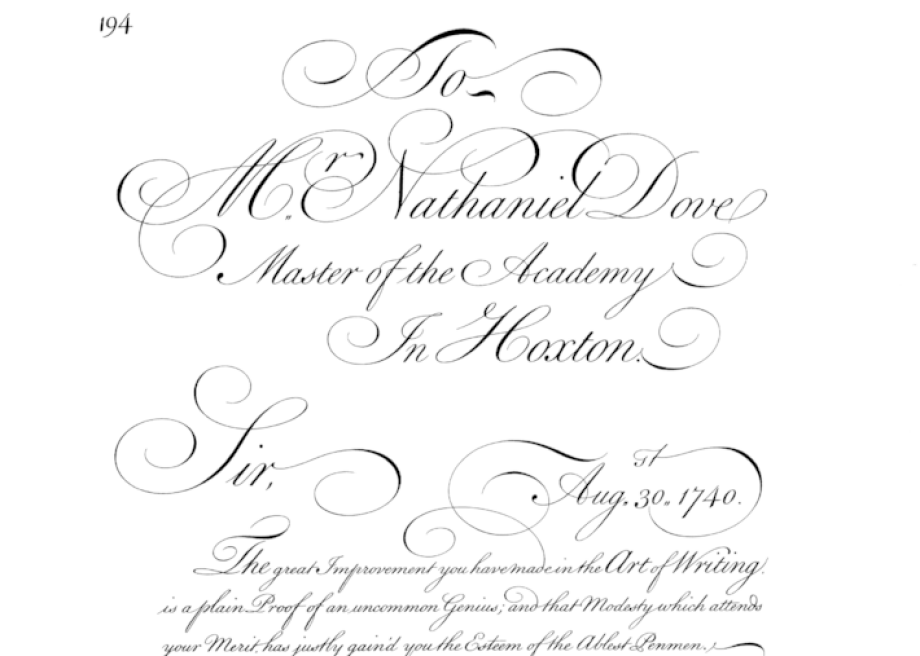 194
To
Mr. Nathaniel Dove
Master of the Academy
In Hoxton.
Sir,
Augst. 30. 1740.
The great Improvement you have made in the Art of Writing.
is a plain Proof of an uncommon Genius; and that Modesty which attends
your Merit, has justly gain'd you the Esteem of the Ablest Penmen.